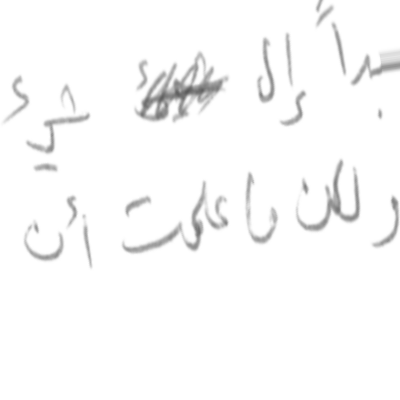 بدأ إلا شيء
ولكن ما علمت أن